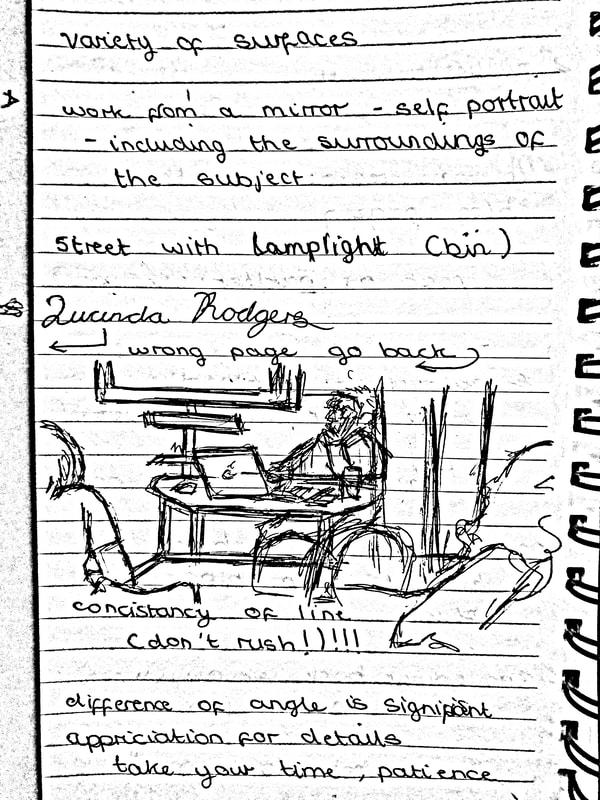 variety of surfaces
work from a mirror - self portrait
- including the surroundings of
the subject
Street with lamplight (bin)
Lucinda Rodgers
wrong page go back
concistancy of line
(don't rush!)!!!
difference of angle is signifi
appriciation for details
take your time, patience